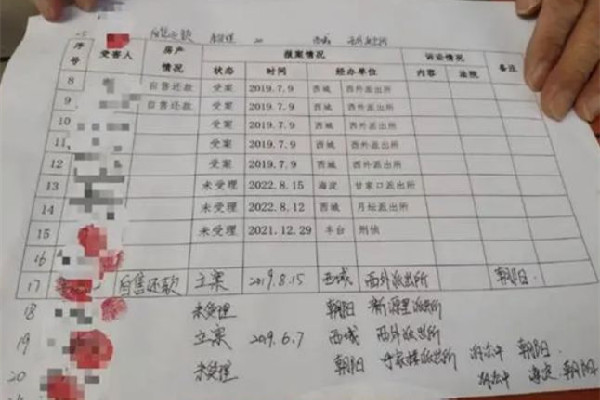 自售还款 未受理 20 西城 西外派出所
序号 受害人 房产情况 报案情况 诉讼情况 备注
状态 时间 经办单位 内容 法院
8 自售还款 受案 2019.7.9 西城 西外派出所
9 自售还款 受案 2019.7.9 西城 西外派出所
10 受案 2019.7.9 西城 西外派出所
11 受案 2019.7.9 西城 西外派出所
12 受案 2019.7.9 西城 西外派出所
13 未受理 2022.8.15 海淀 甘家口派出所
14 未受理 2022.8.12 西城 月坛派出所
15 未受理 2021.12.29 丰台 刑侦
16
17 自售还款 立案 2019.8.15 西城 西外派出所 朝阳
18 未受理 朝阳 新源里派出所
19 立案 2019.6.7 西城 西外派出所 朝阳
20 未受理 朝阳 派出所 海淀 朝阳